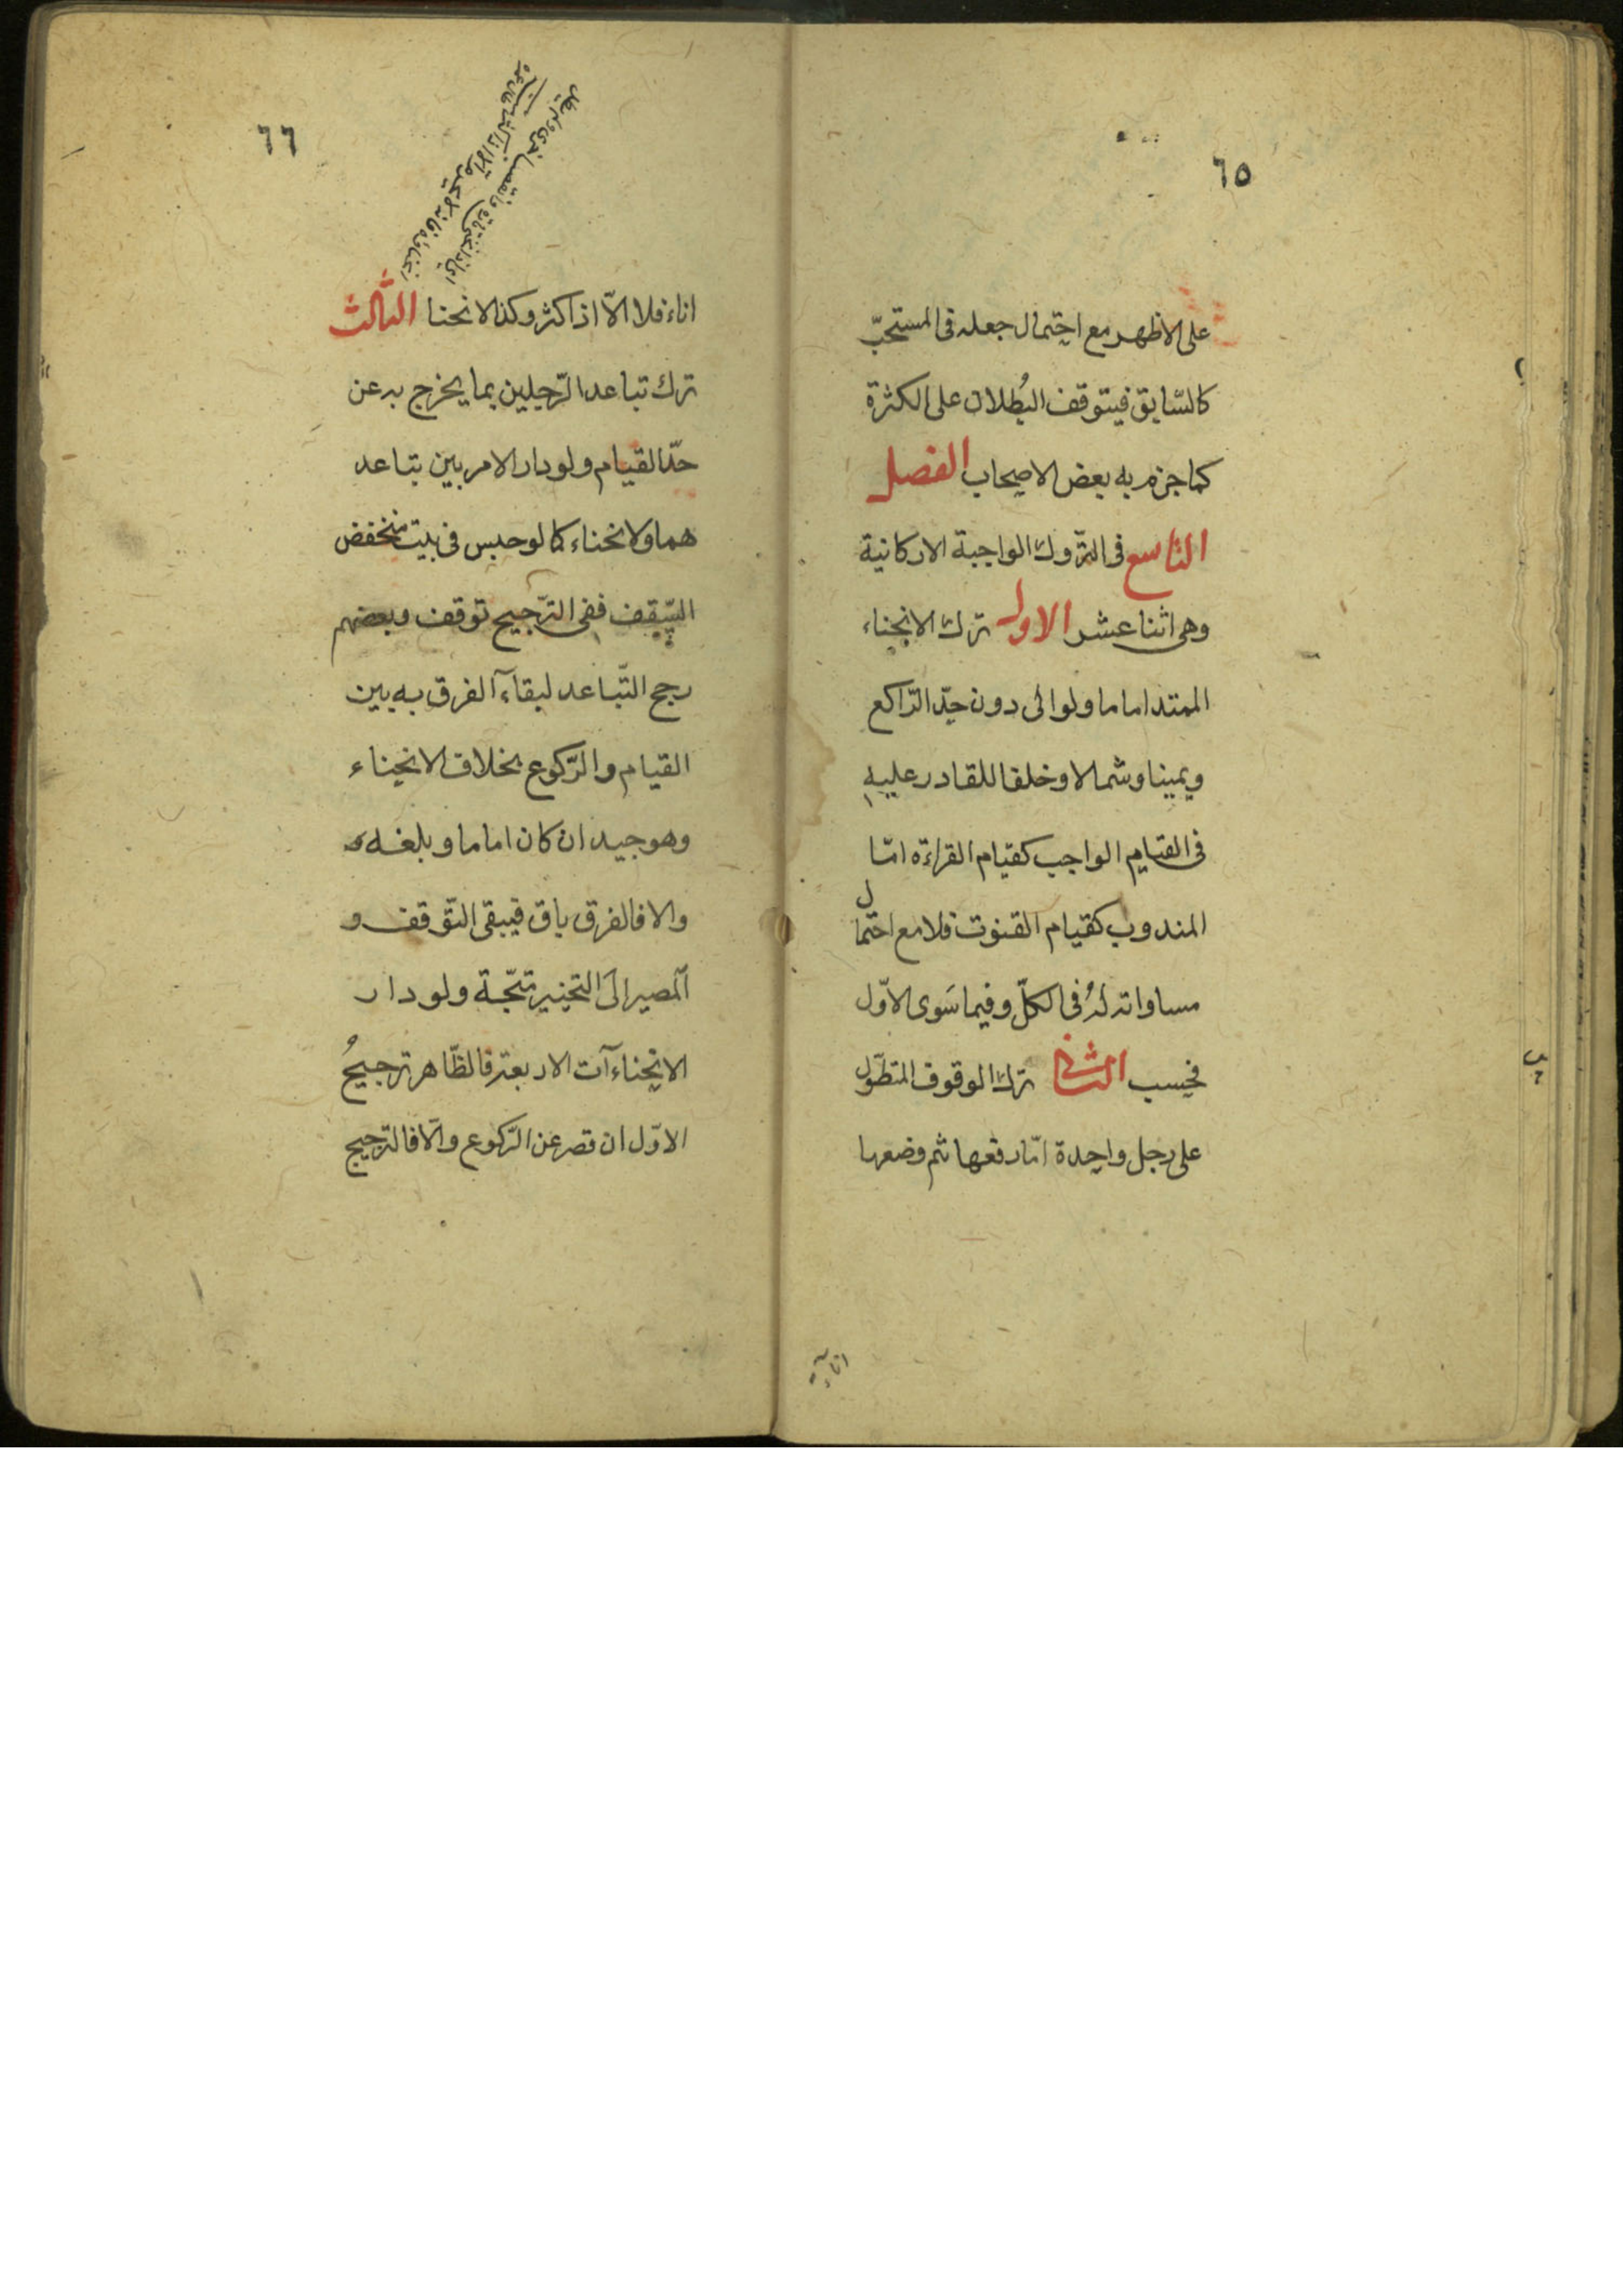 ٦٥
على الاظهر مع احتمال جعله فى المستحبّ
كالسّابق فيتوقف البُطلان على الكثرة
كما جزم به بعض الاصحاب الفصل
التاسع فى التّروك الواجبة الاركانية
وهى اثنا عشر الاول ترك الانحناء
الممتد اماما ولو الى دون حدّ الرّاكع
ويمينا وشمالا وخلفا للقادر عليه
فى القيام الواجب كقيام القراءة امّا
المندوب كقيام القنوت فلا مع احتمال
مساواته لهُ فى الكلّ وفيما سَوى الاوّل
فحسب الثانى ترك الوقوف المتطوّل
على رجل واحدة امّا رفعها ثم وضعها
اناء
٦٦
اناء فلا الّا اذا كثر وكذا الانحنا الثالث
ترك تباعد الرّجلين بما يخرج به عن
حدّ القيام ولو دار الامر بين تباعد
هما والانحناء كما لو حبس فى بيت منخفض
السّقف ففى التّرجيح توقف وبعضهم
رجح التّباعد لبقاء الفرق به بين
القيام والرّكوع بخلاف الانحناء
وهو جيد ان كان اماما وبلغه
والا فالفرق باق فيبقى التّوقف و
المصير الى التخيير متّجة ولو دار
الانحناءآت الاربعة فالظّاهر ترجيحُ
الاوّل ان قصر عن الرّكوع والّا فالترجيح